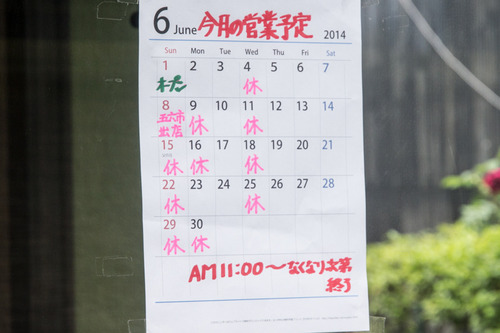 6 June 今月の営業予定 2014
Sun Mon Tue Wed Thu Fri Sat
1 2 3 4 5 6 7
オープン 休
8 9 10 11 12 13 14
五六市 休 休
出店
15 16 17 18 19 20 21
休 休 休
22 23 24 25 26 27 28
休 休
29 30
休 休
AM11:00〜なくなり次第
終了